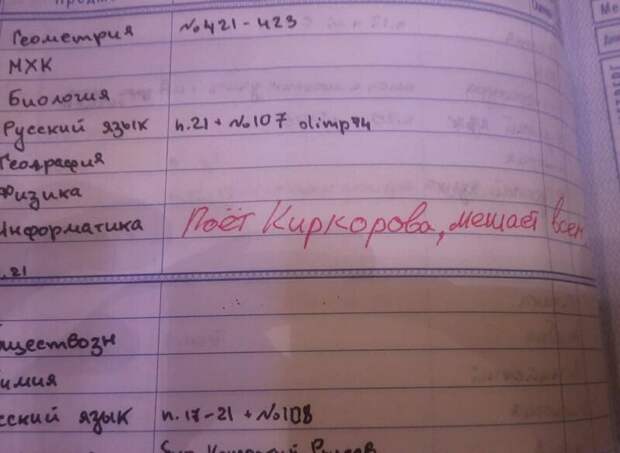 Геометрия №421-423
МХК
Биология
Русский язык п.21 + №107 olimp74
География
Физика
Информатика Поёт Киркорова, мешает всем
.21
бществозн
имия
сский язык п.17-21 + №108